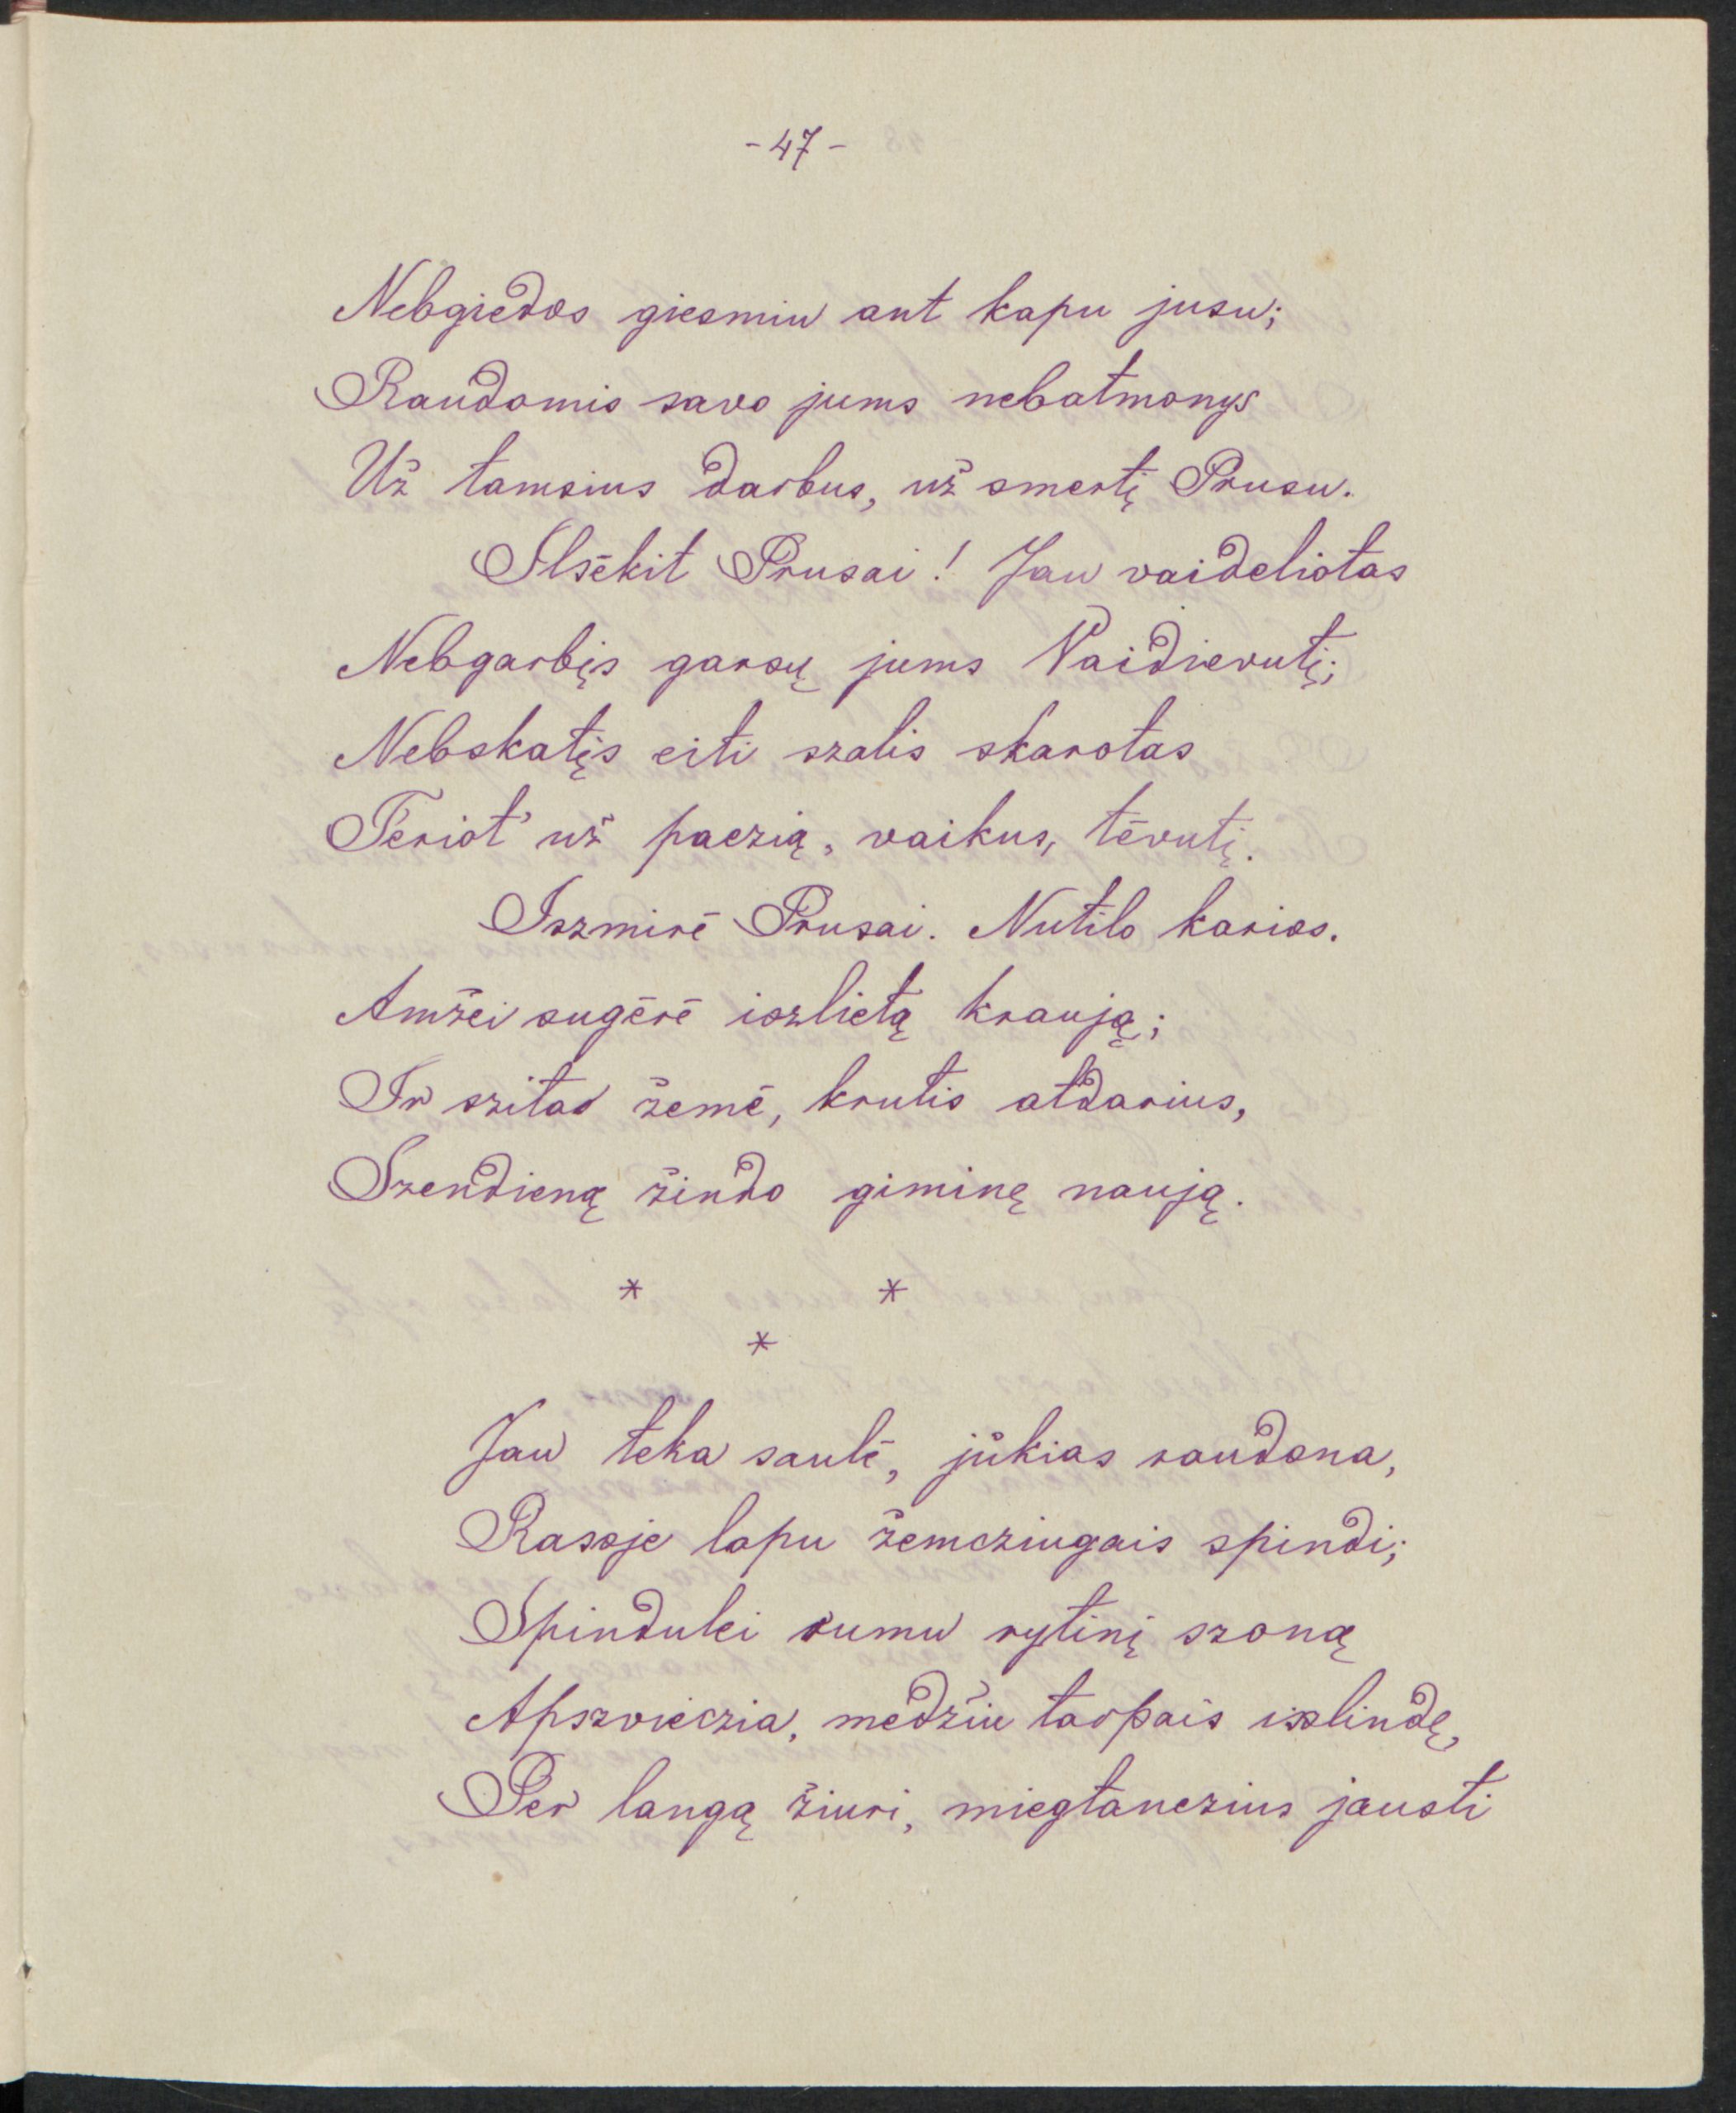 - 47 -
Nebgiedos giesmiu ant kapu jusu;
Raudomis savo jums nebatmonys
Už tamsius darbus, už smertį Prusu.
Ilsėkit Prusai! Jau vaideliotas
Nebgarbįs garsų jums Vaidievutį;
Nebskatįs eiti szalis skarotas
Teriot' už paczią, vaikus, tėvutį.
Iszmirė Prusai. Nutilo karias.
Amžei sugėrė iszlietą kraują;
Ir szitas žemė, krutis atdarius,
Szendieną žindo giminę naują.
* *
*
Jau teka saulė, jůkias raudona,
Rasoje lapu žemcziugais spindi;
Spindulei rumu rytinį szoną
Apszvieczia, medžiu tarpais iszlindę,
Per langą žiuri, miegtanczius jausti